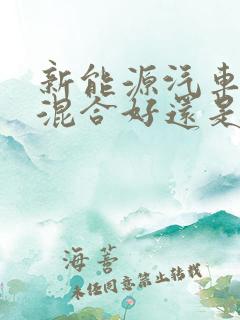 新能源汽車
混合好還是
海薹
未经同意禁止转载